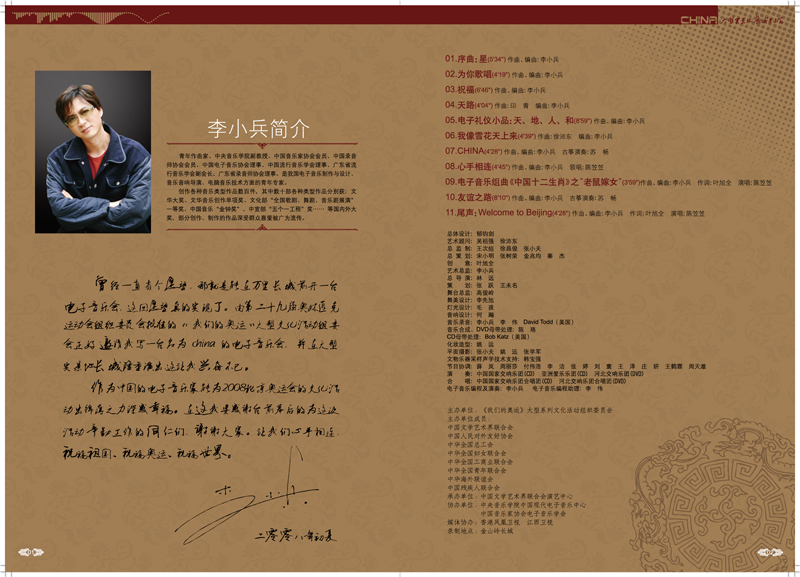 CHINA
李小兵简介
青年作曲家、中央音乐学院副教授、中国音乐家协会会员、中国录音
师协会会员、中国电子音乐协会理事、中国流行音乐学会理事、广东省流
行音乐学会副会长、广东省录音师协会理事。是我国电子音乐制作与设计、
音乐音响导演、电脑音乐技术方面的青年专家。
创作各种音乐类型作品数百件，其中数十部各种类型作品分别获：文
华大奖、文华音乐创作单项奖、文化部“全国歌剧、舞剧、音乐剧展演”
一等奖、中国音乐“金钟奖”、中宣部“五个一工程”奖……等国内外大
奖。部分创作、制作的作品深受群众喜爱被广为流传。
曾经一直有个愿望，那就是在万里长城前开一台
电子音乐会，这回愿望真的实现了。由第二十九届奥林匹克
运动会组织委员会批准的《我们的奥运》大型文化活动组委
会正好邀请我写一台名为china的电子音乐会，并在大型
实景地长城隆重演出这让我兴奋不已。
作为中国的电子音乐家能为2008北京奥运会的文化活
动出绵薄之力深感幸福。在这我要感谢台前幕后的为这次
活动辛勤工作的同仁们，谢谢大家。让我们心手相连，
祝福祖国、祝福奥运、祝福世界。
李小兵
二零零八年初夏
01.序曲：星(5'34") 作曲、编曲：李小兵
02.为你歌唱(4'19") 作曲、编曲：李小兵
03.祝福(6'46") 作曲、编曲：李小兵
04.天路(4'04") 作曲：印　青　编曲：李小兵
05.电子礼仪小品：天、地、人、和(8'59") 作曲、编曲：李小兵
06.我像雪花天上来(4'39") 作曲：徐沛东　编曲：李小兵
07.CHINA(4'28") 作曲、编曲：李小兵　古筝演奏：苏　畅
08.心手相连(4'45") 作曲、编曲：李小兵　哥唱：陈笠笠
09.电子音乐组曲《中国十二生肖》之“老鼠嫁女”(3'59")作曲、编曲：李小兵　作词：叶旭全　演唱：陈笠笠
10.友谊之路(8'10") 作曲、编曲：李小兵　古筝演奏：苏　畅
11.尾声：Welcome to Beijing(4'28") 作曲、编曲：李小兵　作词：叶旭全　演唱：陈笠笠
总体设计：郁钧剑
艺术顾问：吴祖强　徐沛东
总 监 制：王次炤　徐昌俊　张小夫
总 策 划：宋小明　张树荣　金兆均　秦　杰
创　　意：叶旭全
艺术总监：李小兵
总 导 演：林　远
策　　划：张　跃　王未名
舞台总监：高俊岭
舞美设计：李先旭
灯光设计：毛　晟
音响设计：何　飚
音乐录音：李小兵　李　伟　David Todd（美国）
音乐合成、DVD母带处理：陈　珞
CD母带处理：Bob Katz（美国）
化妆造型：姚　远
平面摄影：张小夫　姚　远　张华军
文物乐器采样声学技术支持：韩宝强
演　　奏：中国国家交响乐团(CD)　亚洲爱乐乐团(CD)　河北交响乐团(DVD)
合　　唱：中国国家交响乐团合唱团(CD)　河北交响乐团合唱团(DVD)
电子音乐编程及演奏：李小兵　电子音乐编程助理：李　伟
主办单位：《我们的奥运》大型系列文化活动组织委员会
主办单位成员
中国文学艺术界联合会
中国人民对外友好协会
中华全国总工会
中华全国妇女联合会
中华全国工商业联合会
中华全国青年联合会
中华海外联谊会
中国残疾人联合会
承办单位：中国文学艺术界联合会演艺中心
协办单位：中央音乐学院中国现代电子音乐中心
中国音乐家协会电子音乐学会
媒体协办：香港凤凰卫视　江西卫视
录制地点：金山岭长城